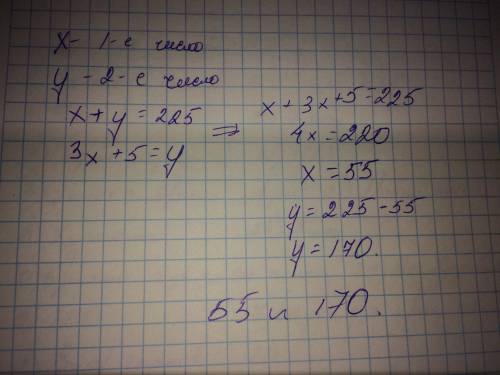 x - 1-е число
y - 2-е число
x + y = 225
3x + 5 = y
⇒
x + 3x + 5 = 225
4x = 220
x = 55
y = 225 - 55
y = 170.
55 и 170.